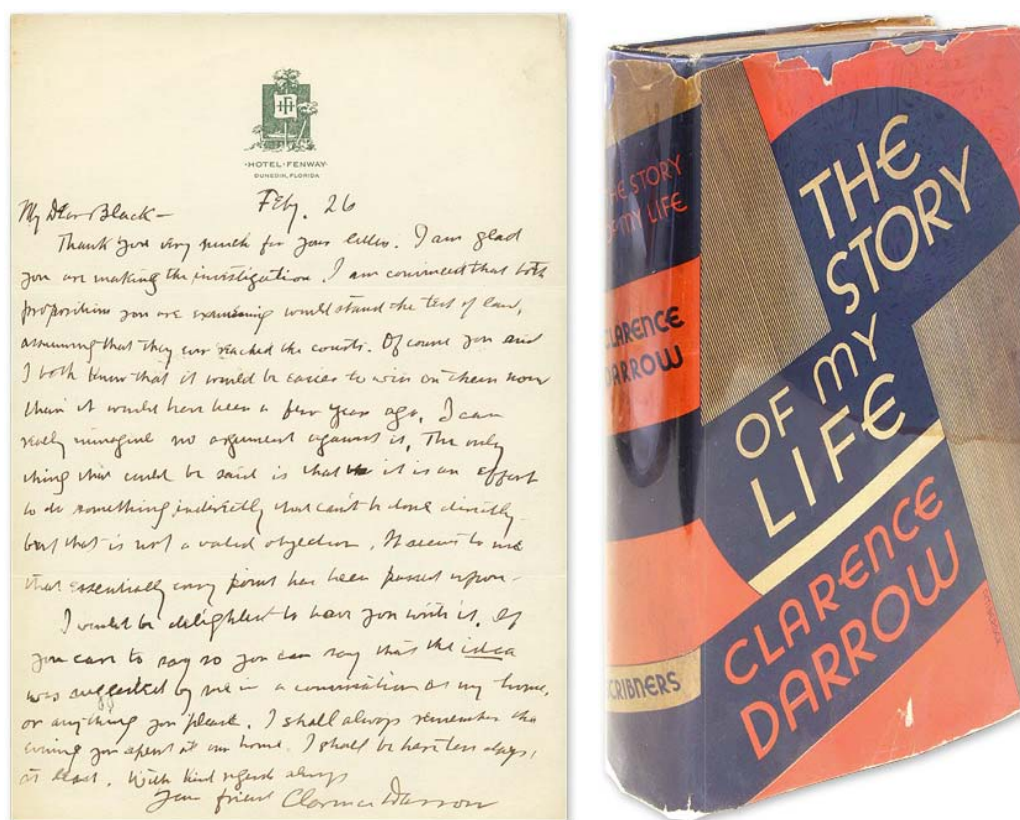 HF
·HOTEL·FENWAY·
DUNEDIN, FLORIDA
Feby. 26
My Dear Black —
Thank you very much for your letter. I am glad
you are making the investigation. I am convinced that both
propositions you are examining would stand the test of law,
assuming that they ever reached the courts. Of course you and
I both know that it would be easier to win on them now
than it would have been a few years ago. I can
really imagine no argument against it. The only
thing that could be said is that it is an effort
to do something indirectly that can't be done directly
but that is not a valid objection. It seems to me
that essentially every point has been passed upon.
I would be delighted to have you write it. If
you care to say so you can say that the idea
was suggested by me in a conversation at my home,
or anything you please. I shall always remember the
evening you spent at our home. I shall be here ten days,
at least. With kind regards always
Your friend Clarence Darrow
THE STORY
OF MY LIFE
CLARENCE
DARROW
SCRIBNERS
THE
STORY
OF MY
LIFE
CLARENCE
DARROW